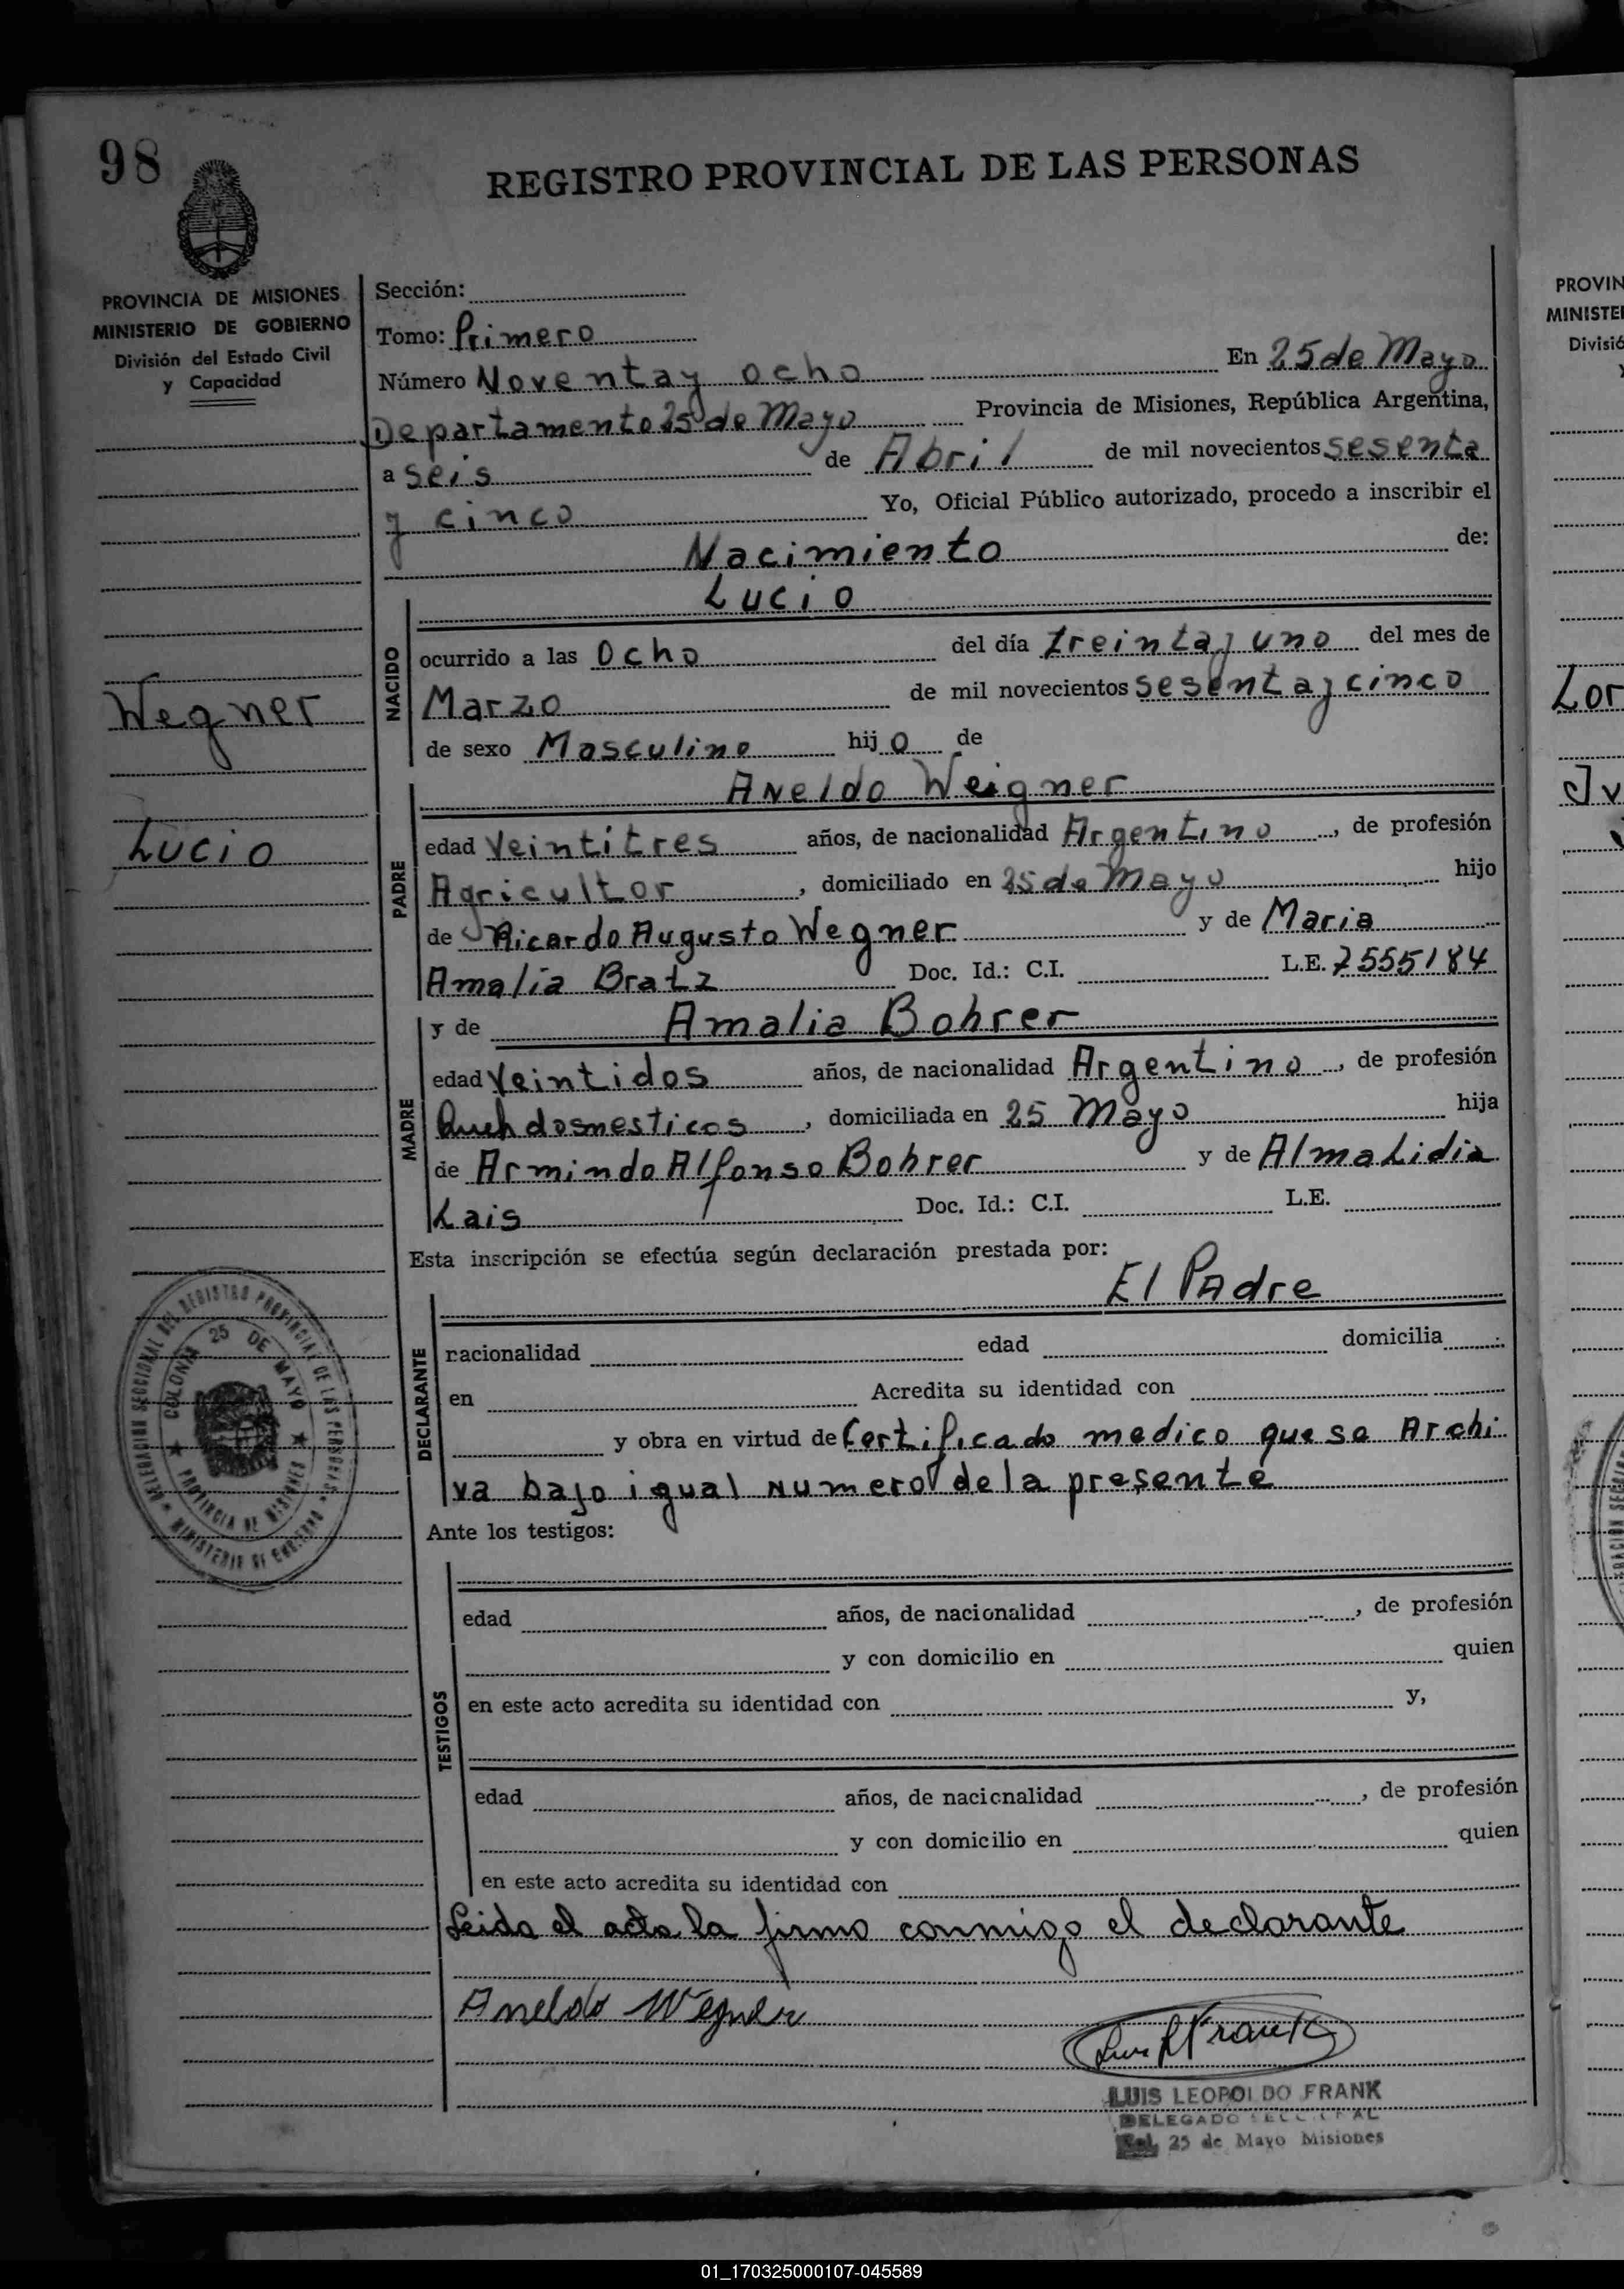 98
REGISTRO PROVINCIAL DE LAS PERSONAS
PROVINCIA DE MISIONES
MINISTERIO DE GOBIERNO
División del Estado Civil
y Capacidad
Wegner
Lucio
Sección:
Tomo: Primero
Número Noventa y ocho En 25 de Mayo
Departamento 25 de Mayo Provincia de Misiones, República Argentina,
a seis de Abril de mil novecientos sesenta
y cinco Yo, Oficial Público autorizado, procedo a inscribir el
Nacimiento de:
Lucio
NACIDO
ocurrido a las Ocho del día treinta y uno del mes de
Marzo de mil novecientos sesenta y cinco
de sexo Masculino hijo de
Aneldo Weigner
PADRE
edad Veintitres años, de nacionalidad Argentino, de profesión
Agricultor, domiciliado en 25 de Mayo hijo
de Ricardo Augusto Wegner y de Maria
Amalia Bratz Doc. Id.: C.I. L.E. 7555184
y de Amalia Bohrer
MADRE
edad Veintidos años, de nacionalidad Argentino, de profesión
dosmesticos, domiciliada en 25 Mayo hija
de Armindo Alfonso Bohrer y de Alma Lidia
Lais Doc. Id.: C.I. L.E.
Esta inscripción se efectúa según declaración prestada por:
El PAdre
DECLARANTE
racionalidad edad domicilia
en Acredita su identidad con
y obra en virtud de Certificado medico que se Archi
va bajo igual Numero de la presente
Ante los testigos:
TESTIGOS
edad años, de nacionalidad , de profesión
y con domicilio en quien
en este acto acredita su identidad con y,
edad años, de nacicnalidad , de profesión
y con domicilio en quien
en este acto acredita su identidad con
Leida el acta la firmo conmigo el declarante
Aneldo Wegner
Luis L Frank
LUIS LEOPOLDO FRANK
DELEGADO
Col. 25 de Mayo Misiones
DELEGACION SECCIONAL DEL REGISTRO PROVINCIAL DE LAS PERSONAS
MINISTERIO DE GOBIERNO
COLONIA 25 DE MAYO
PROVINCIA DE MISIONES
PROVIN
MINISTE
Divisió
Lor
01_170325000107-045589